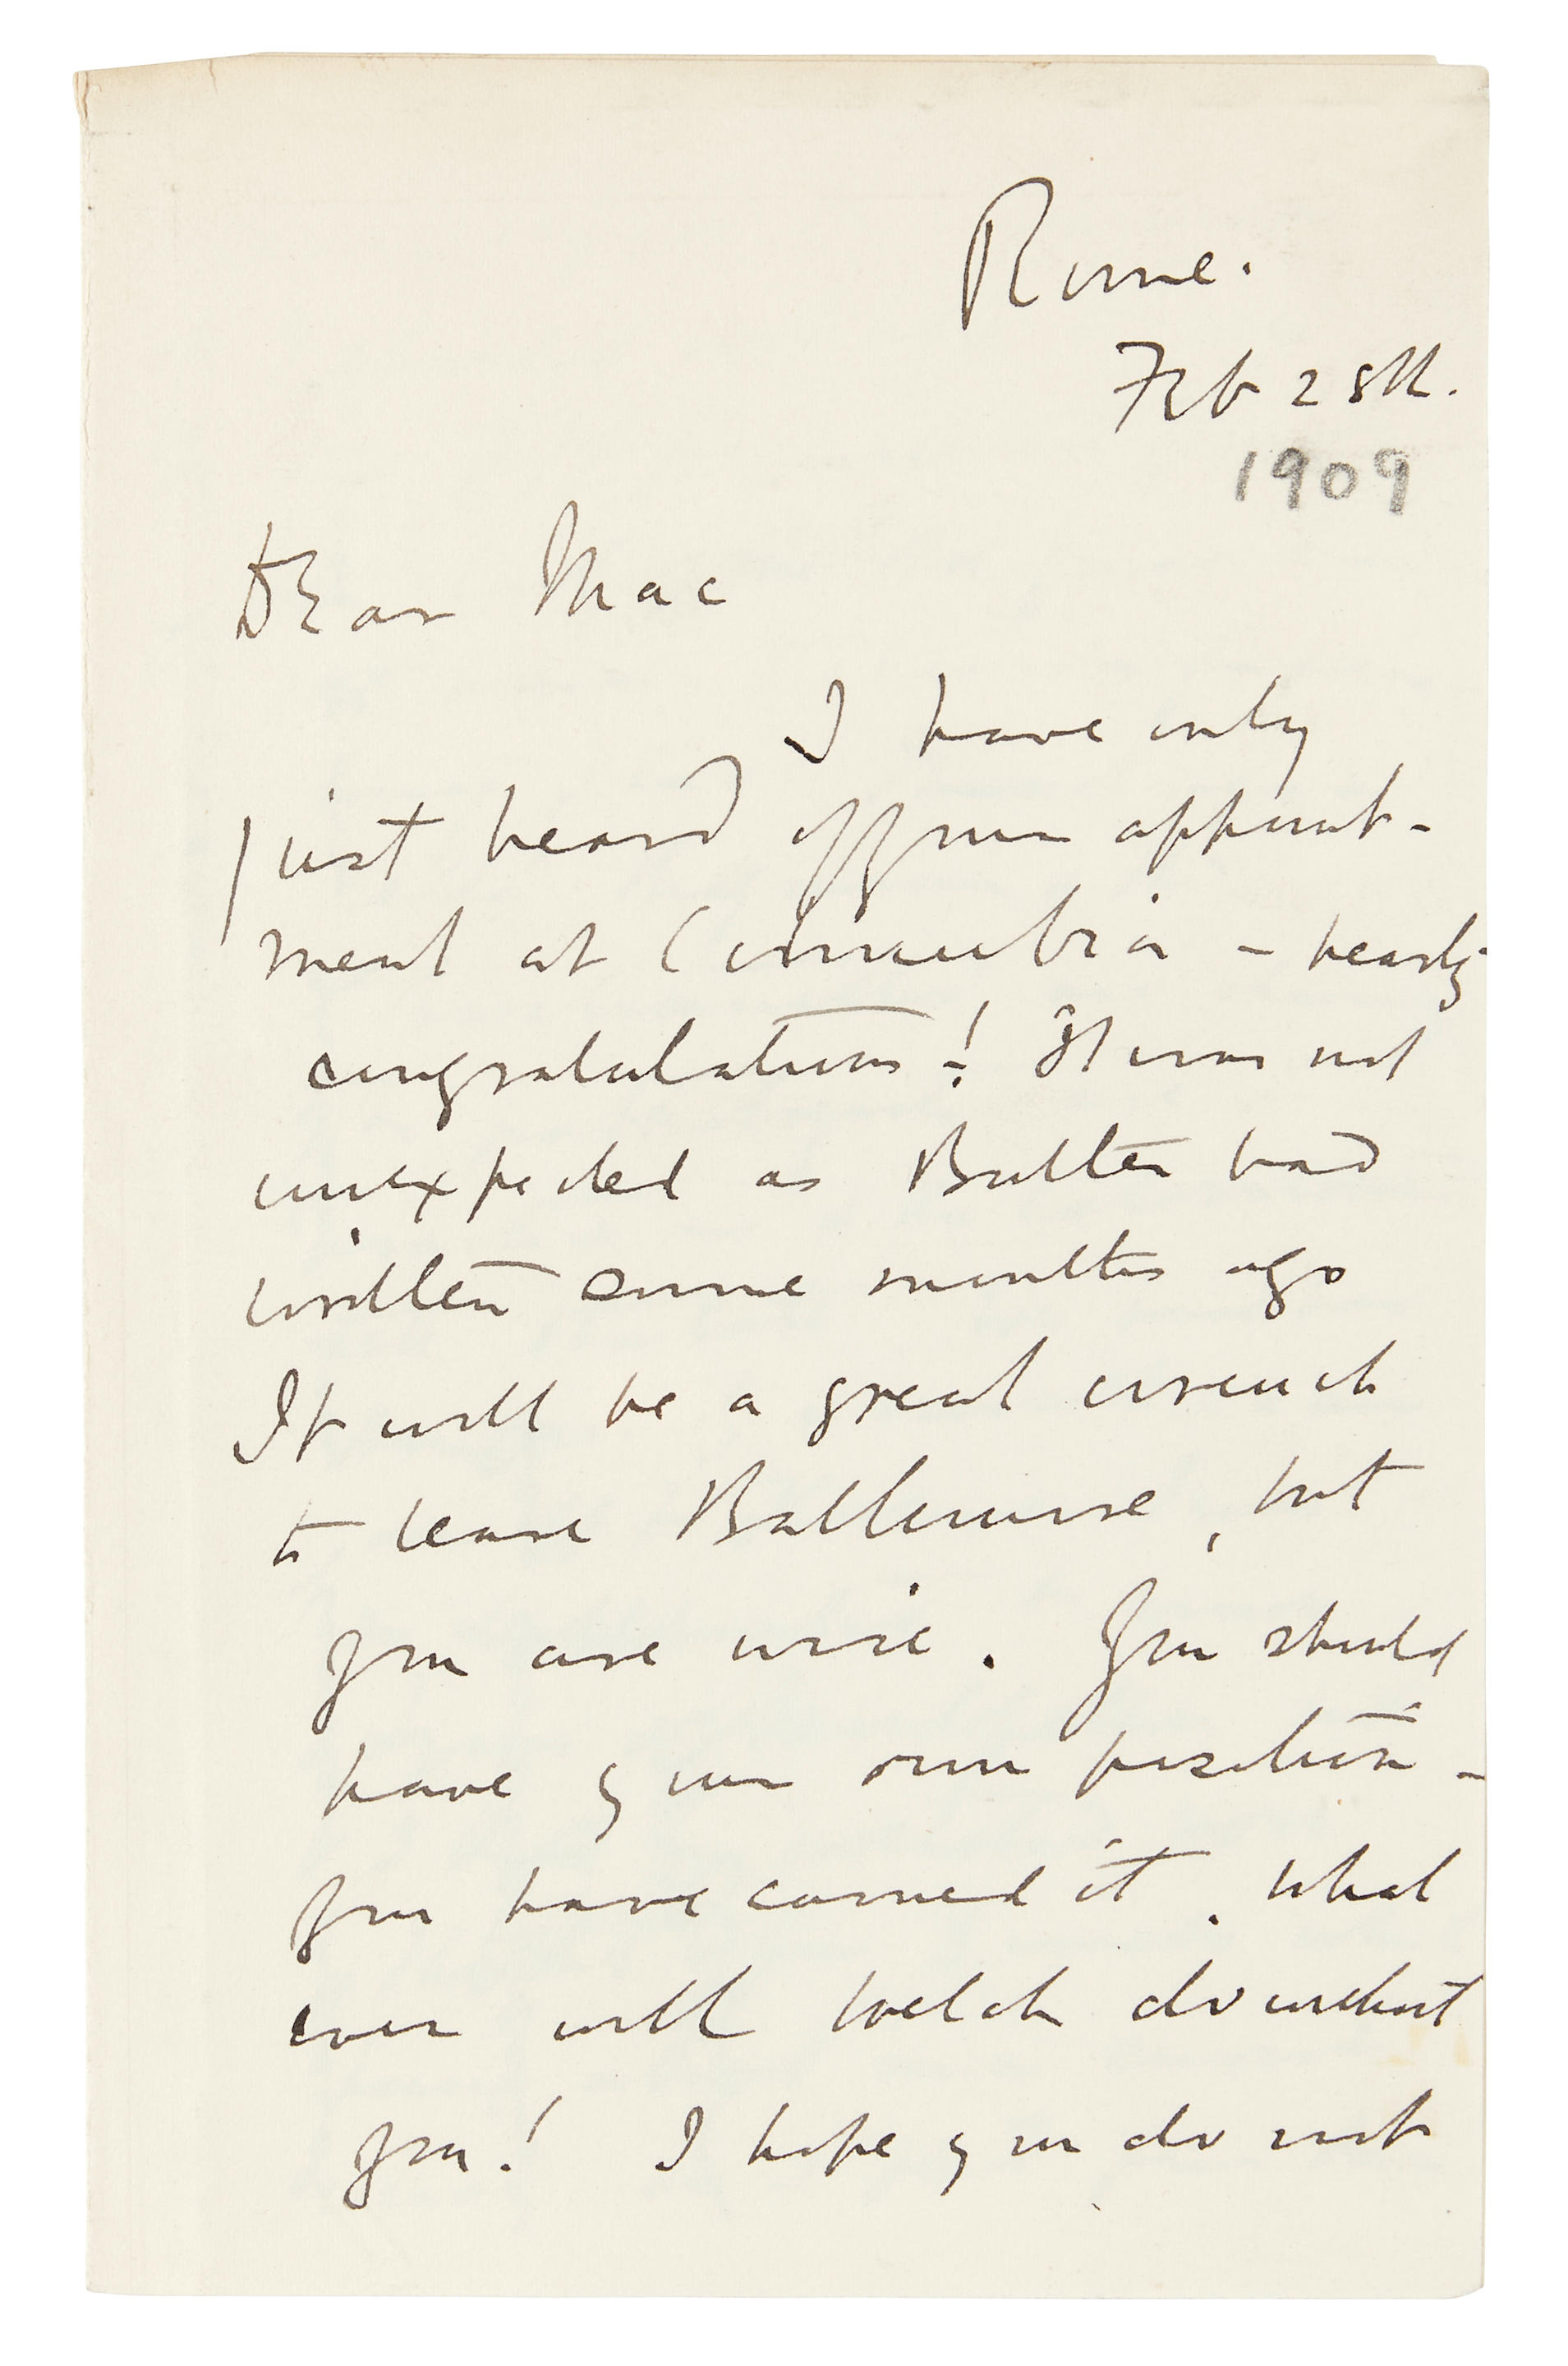 Rome.
Feb 28th.
1909
Dear Mac
I have only
just heard of your appoint-
ment at Columbia - hearty
congratulations! It was not
unexpected as Butler had
written some months ago
It will be a great wrench
to leave Baltimore, but
you are wise. You should
have your own position -
you have earned it. What
ever will Welch do without
you! I hope you do not